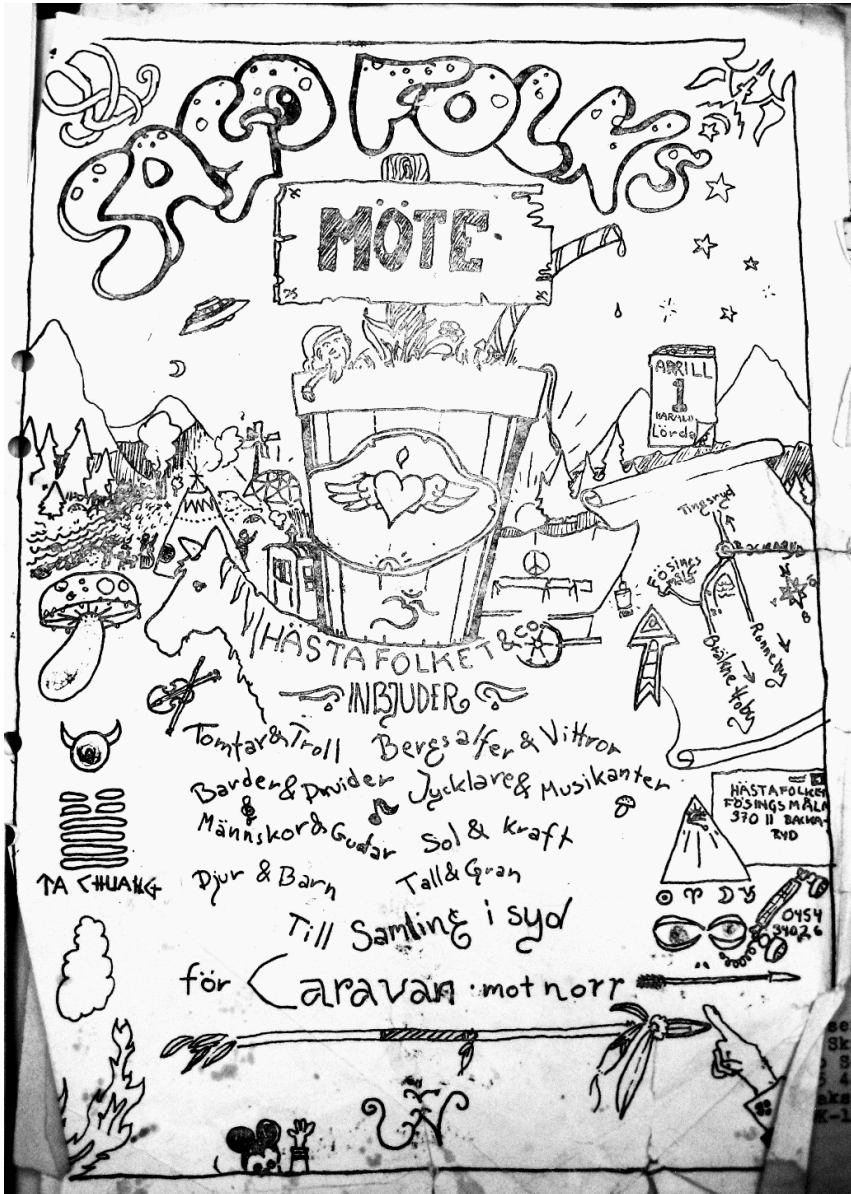 ALP FOLKS
MÖTE
APRILL
1
Lörda
Tingsryd
FÖSINGS
MÅLA
Ronneby
Bräkne Hoby
HÄSTAFOLKET & CO.
INBJUDER
Tomtar & Troll Bergsalfer & Vittror
Barder & Druider Jycklare & Musikanter
&
Männskor & Gudar Sol & Kraft
Djur & Barn Tall & Gran
Till Samling i syd
för Caravan · mot norr
HÄSTAFOLKET
FÖSINGSMÅLA
370 11 BACKA-
RYD
TA CHUANG
0454
34026